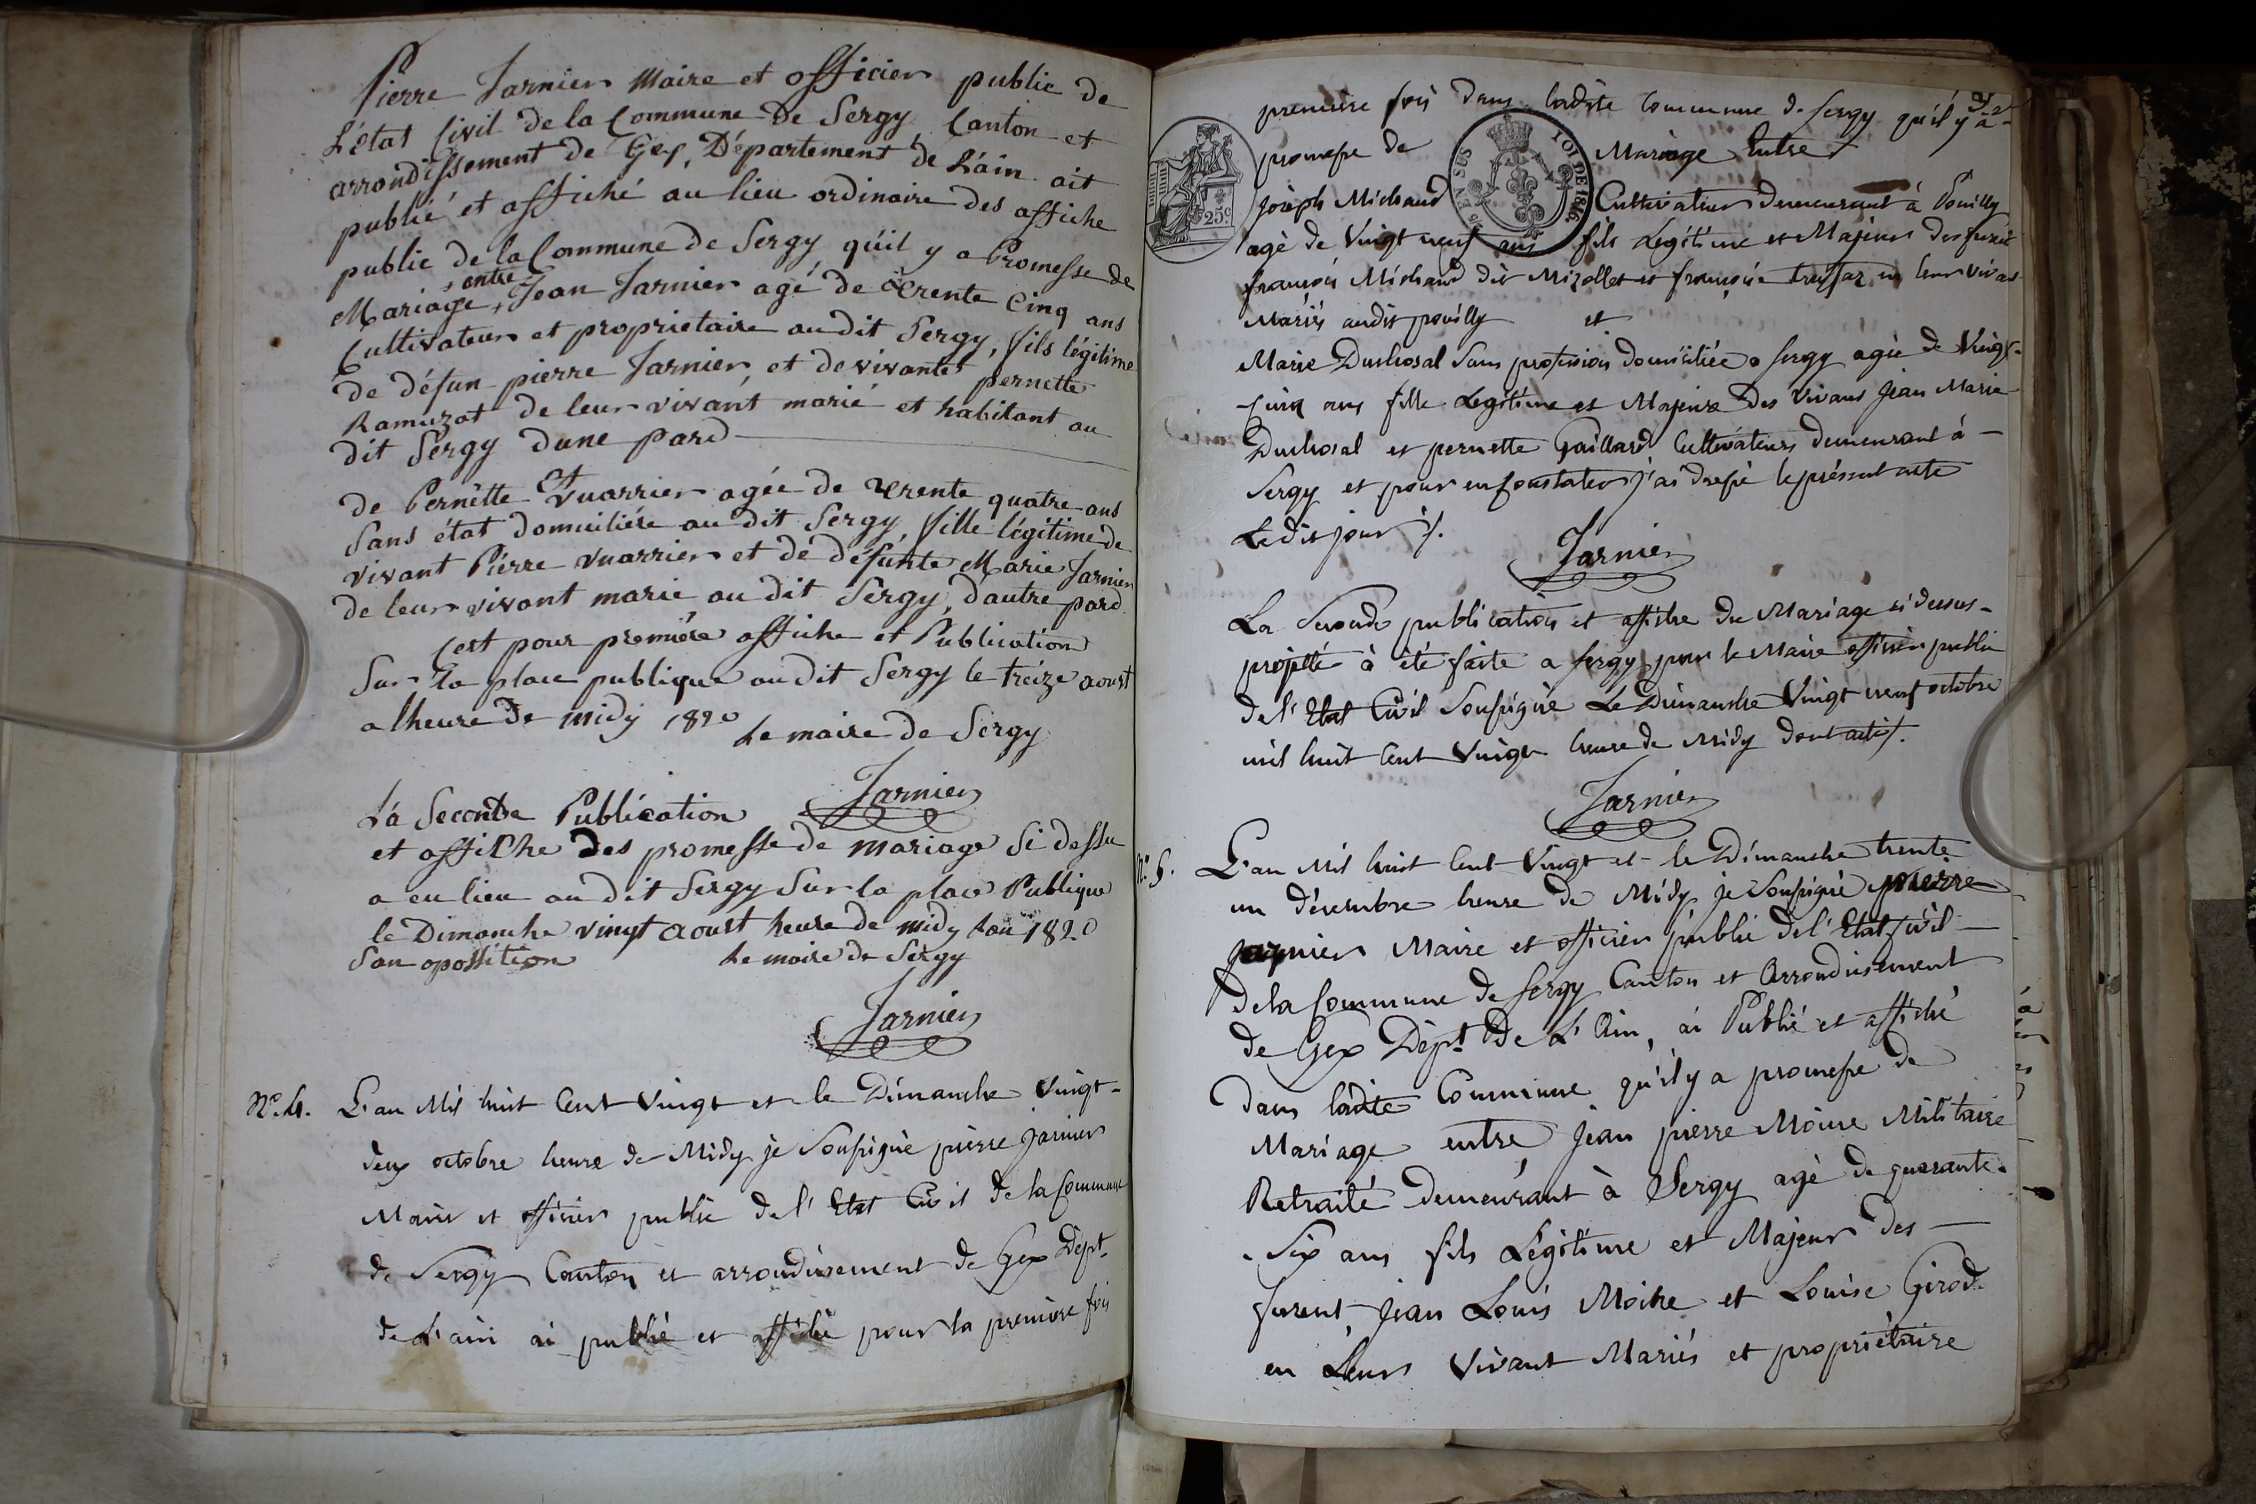 Pierre Jarnier Maire et officier public de
L'Etat Civil de la Commune De Sergy, Canton et
arrondissement de Gex, Département de L'ain ait
publié et affiché au lieu ordinaire des affiche
public de la Commune de Sergy qu'il y a Promesse de
Mariage, entre Jean Jarnier agé de trente cinq ans
Cultivateur et proprietaire au dit Sergy, fils légitime
de défun pierre Jarnier, et de vivante pernette
Ramuzat de leur vivant marié et habitant au
dit Sergy d'une pard
Et
de Pernette Vuarrier agée de trente quatre ans
Sans état domiciliére au dit Sergy, fille légitime de
vivant Pierre vuarrier et de défunte Marie Jarnier
de leur vivant marié au dit Sergy, d'autre pard.
C'est pour première affiche et Publication
Sur la place publique au dit Sergy le treize aoust
a lheure de midy 1820
Le maire de Sergy
Jarnier
La Seconde Publication
et affiche des promesse de mariage Si dessu
a eu lieu au dit Sergy Sur la place Publique
le Dimanche vingt aoust heure de midy 1820
San opossition
Le maire de Sergy
Jarnier
N.° 4. L'an Mil huit Cent Vingt et le Dimanche Vingt-
deux octobre heure de Midy je Soussigné pierre Jarnier
Maire et officier public de l'Etat Civil de la Commune
de Sergy Canton et arrondissement de Gex Dépt.
de L'ain ai publié et affiché pour la première fois
première fois dans ladite Commune de Sergy qu'il y a
promesse de Mariage Entre
25c
LOI DE 1816.
Joseph Michaud Cultivateur Demeurant à Pouilly
agé de Vingt neuf ans fils Légitime et Majeur des furent
françois Michaud dit Mizollet et françoise en leur vivant
Mariés audit pouilly et
Marie Duchosal Sans profession domiciliée a Sergy agée de Vingt-
Cinq ans fille Légitime et Majeure Des Vivans Jean Marie
Duchosal et pernette Gaillard Cultivateurs Demeurant à
Sergy et pour en Constater j'ai dressé le présent acte
Ledit jour /.
Jarnier
La Seconde publication et affiche du Mariage ci dessus-
projetté à été faite a Sergy par le Maire officier public
de l'Etat Civil Soussigné Le Dimanche Vingt neuf octobre
mil huit Cent Vingt heure de Midy dont acte /.
Jarnier
N.° 5. L'an Mil huit Cent Vingt et le Dimanche trente
un décembre heure de Midy je Soussigné pierre
Jarnier Maire et officier public de l'Etat Civil
de la Commune de Sergy Canton et Arrondissement
de Gex Dépt. de L'Ain, ai Publié et affiché
dans ladite Commune qu'il y a promesse de
Mariage entre Jean pierre Moine Militaire
Retraité Demeurant à Sergy agé de quarante-
Six ans fils Légitime et Majeur des
furent, Jean Louis Moine et Louise Girod
en Leurs Vivant Mariés et propriétaire